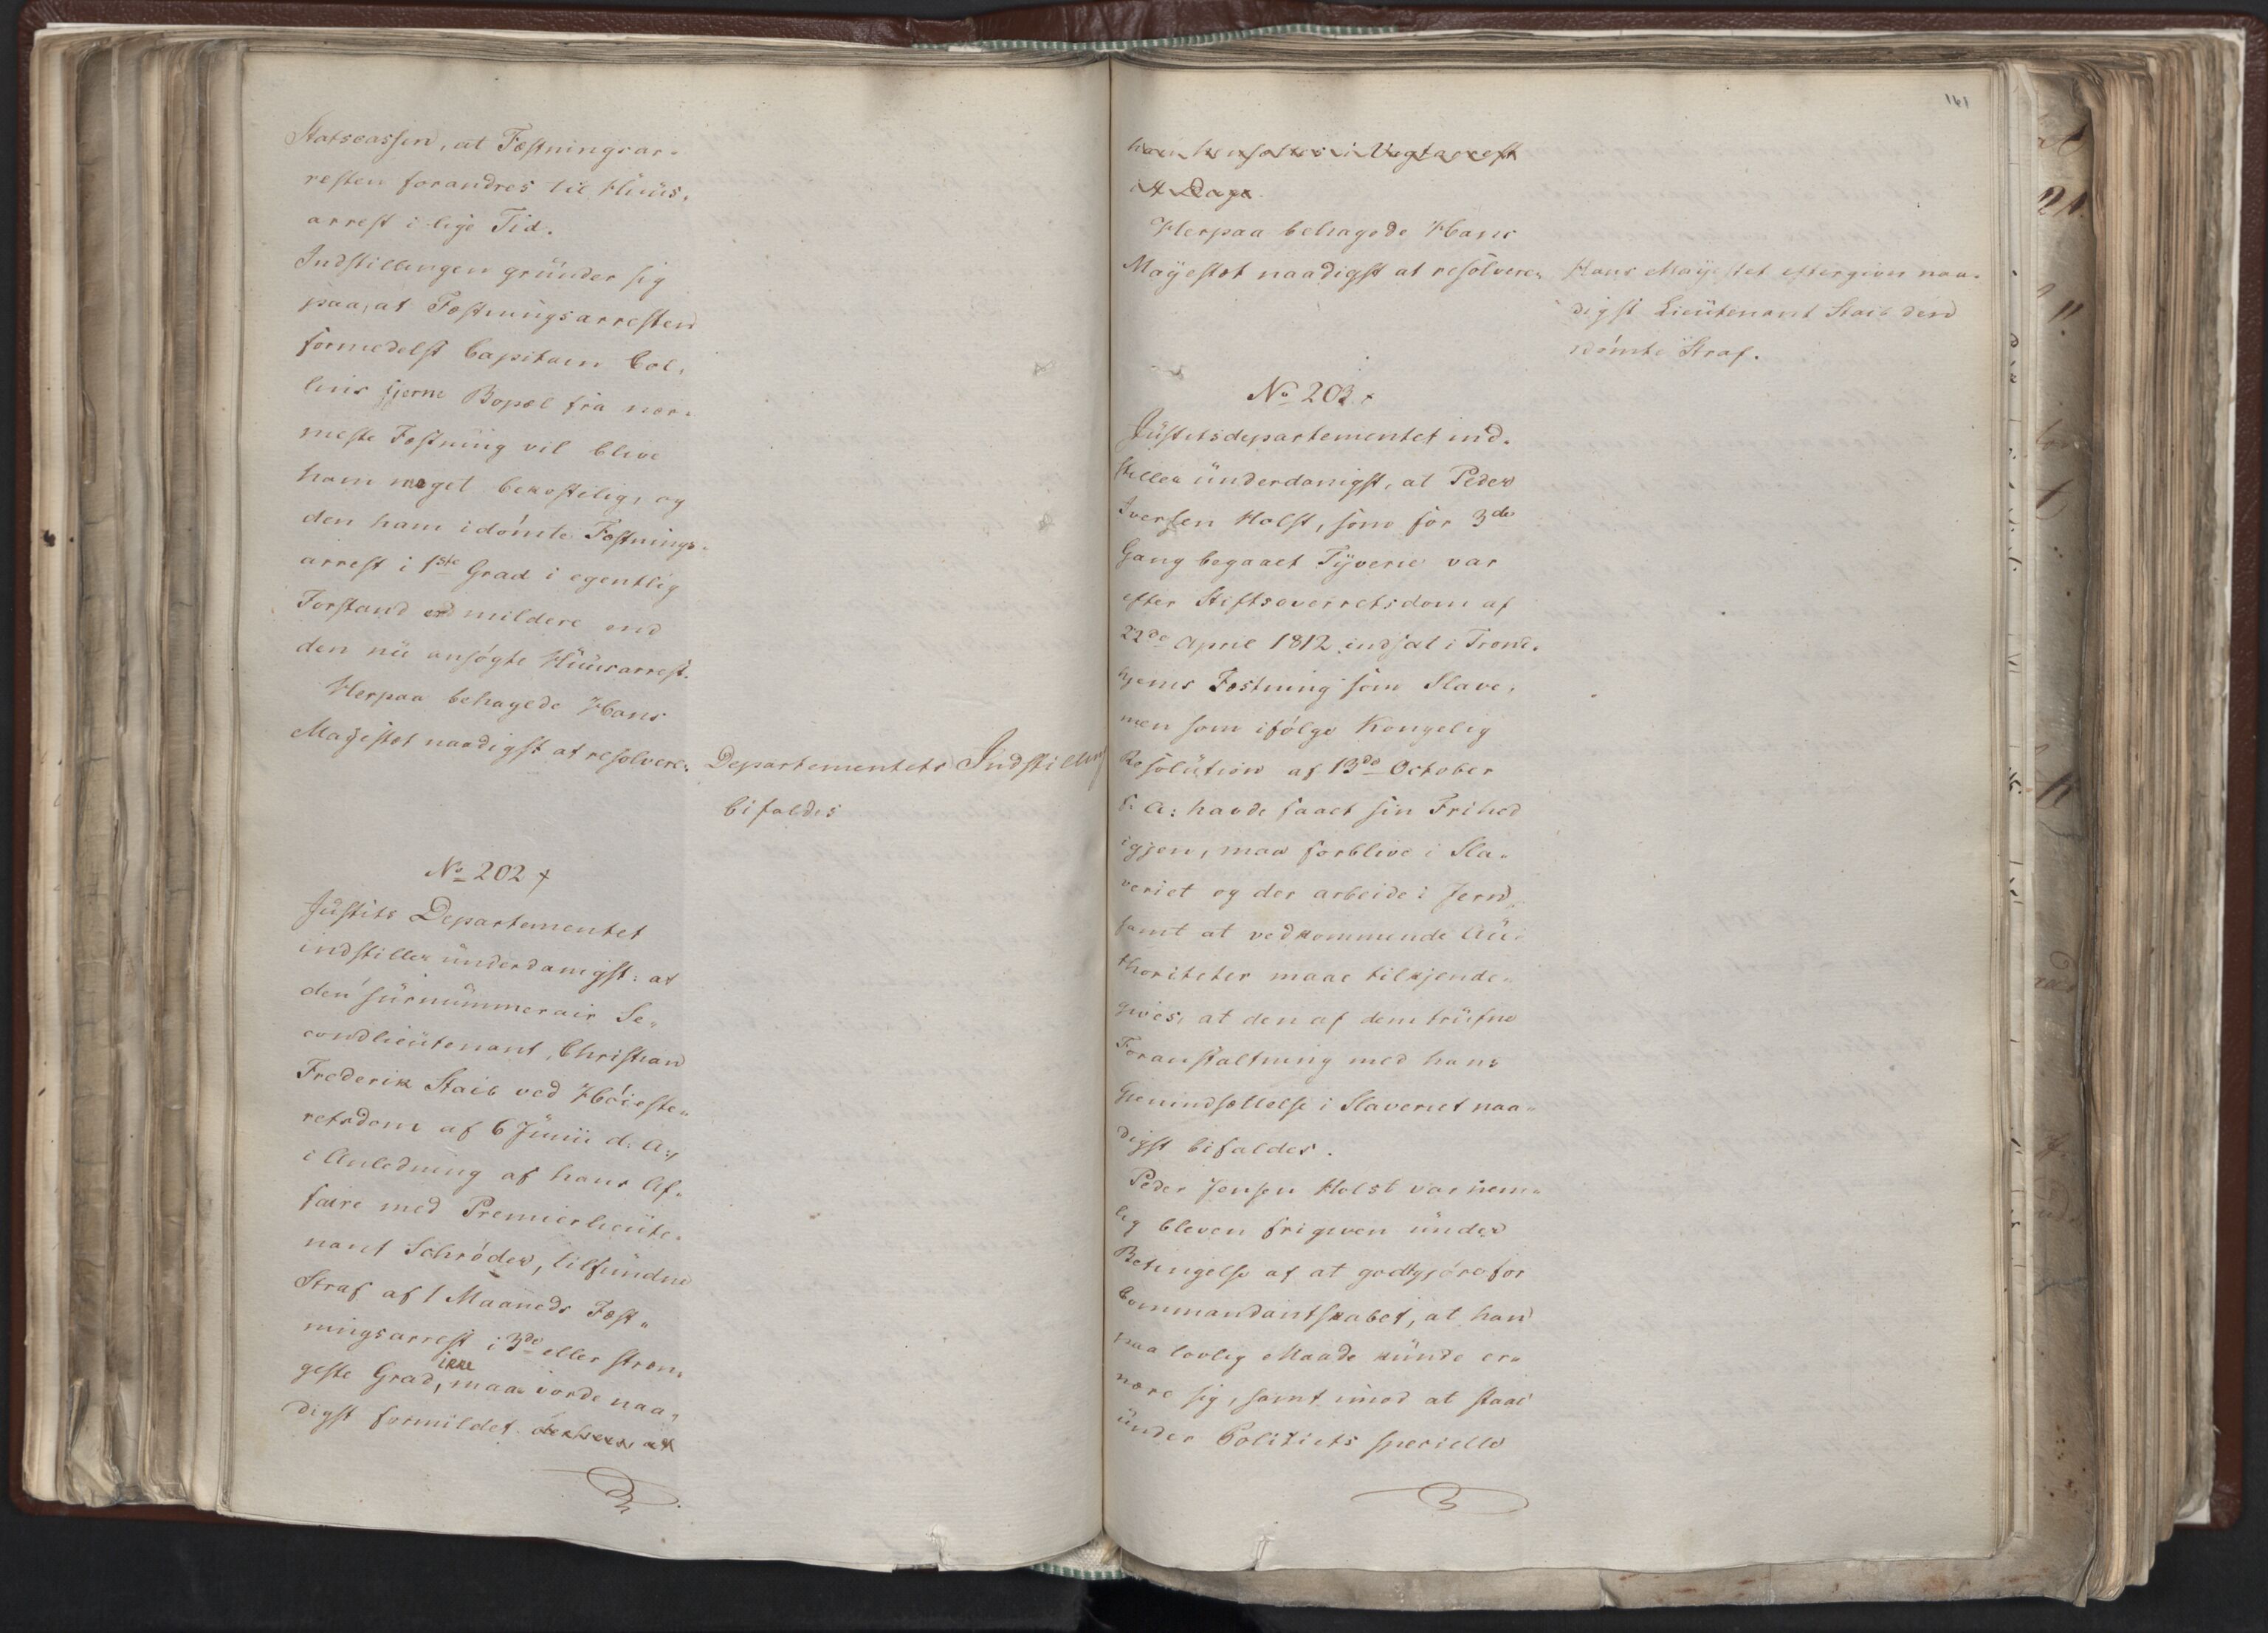 Statscassen, at Fæstningsar-
resten forandres til Huus-
arrest i lige Tid.
Indstillingen grunder sig
paa, at Fæstningsarresten
formedelst Capitain Col-
lins fjerne Bopæl fra nær-
meste Fæstning vil blive
ham meget bekostelig, og
den ham idømte Fæstnings-
arrest i 1ste Grad i egentlig
Forstand er mildere end
den nu ansøgte Huusarrest.
Herpaa behagede Hans
Majestæt naadigst at resolvere:
Departementets Indstilling
bifaldes
No 202 +
Justits Departementet
indstiller underdanigst: at
den surnummerair Se-
condlieutenant, Christian
Frederik Staib ved Høieste-
retsdom af 6 Junii d. A.,
i Anledning af hans Af-
faire med Premierlieute-
nant Schrøder, tilfundne
Straf af 1 Maaneds Fæst-
ningsarrest i 3de eller stræn-
geste Grad, ikke maa vorde naa-
digst formildet derhen at
161
han hensættes i Vagtarrest
i 4 Dage.
Herpaa behagede Hans
Majestæt naadigst at resolvere:
Hans Majestet eftergiver naa-
digst Lieutenant Staib den
idømte Straf.
No 203 +
Justitsdepartementet ind-
stiller underdanigst, at Peder
Iversen Holst, som for 3de
Gang begaaet Tyverie var
efter Stiftsoverretsdom af
22de April 1812 indsat i Trond-
hjems Fæstning som Slave,
men som ifølge Kongelig
Resolution af 13de October
f: A: havde faaet sin Frihed
igjen, maa forblive i Sla-
veriet og der arbeide i Jern
samt at vedkommende Au-
thoriteter maae tilkjende-
gives, at den af dem trufne
Foranstaltning med hans
Gjenindsættelse i Slaveriet naa-
digst bifaldes.
Peder Jensen Holst var nem-
lig bleven frigiven under
Betingelse af at godtgjøre for
Commandantskabet, at han
paa lovlig Maade kunde er-
nære sig, samt imod at staae
under Politiets specielle